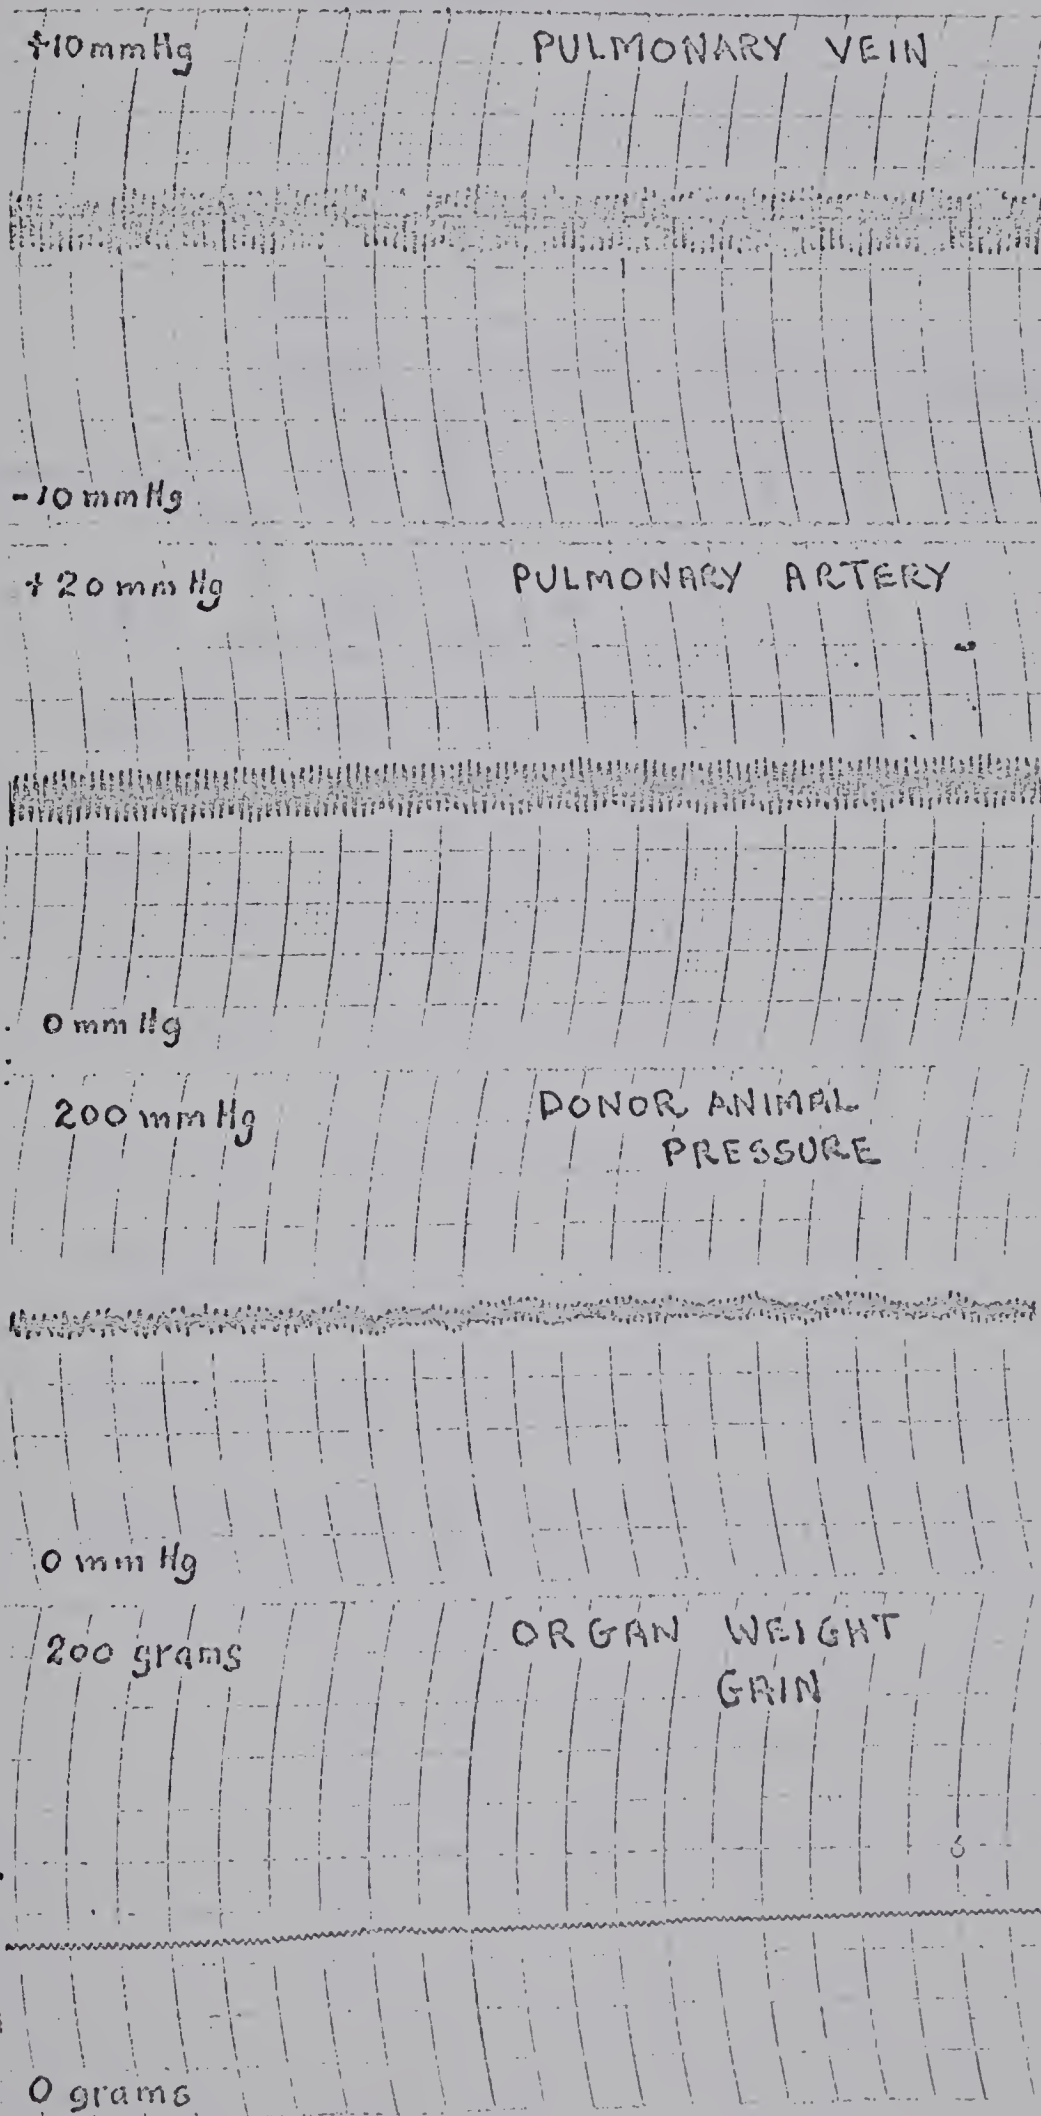 +10 mmHg PULMONARY VEIN
-10 mmHg
+20 mmHg PULMONARY ARTERY
0 mmHg
200 mmHg DONOR ANIMAL
PRESSURE
0 mmHg
200 grams ORGAN WEIGHT
GAIN
6
0 grams